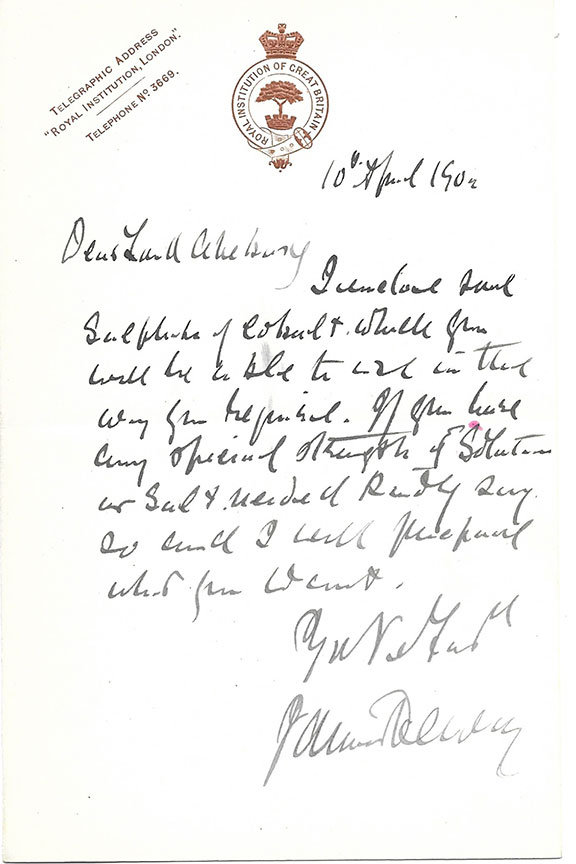 TELEGRAPHIC ADDRESS
"ROYAL INSTITUTION, LONDON."
TELEPHONE No 3669.
ROYAL INSTITUTION OF GREAT BRITAIN
10th April 190
Dear Lord Avebury
I enclose some
Sulphate of Cobalt which you
will be able to use in the
way you require. If you have
any special strength of Solution
or Salt needed kindly say
so and I will prepare
what you want.
James Dewar